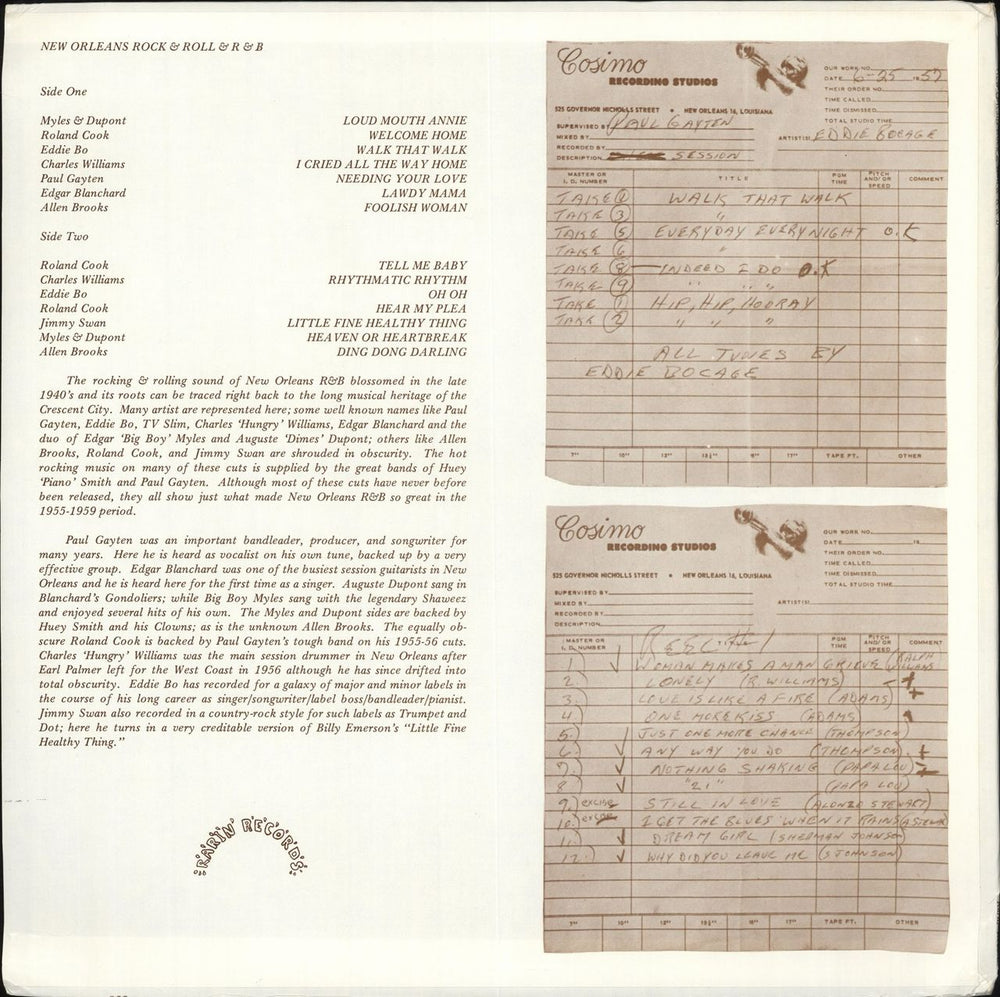 NEW ORLEANS ROCK & ROLL & R & B
Side One
Myles & Dupont LOUD MOUTH ANNIE
Roland Cook WELCOME HOME
Eddie Bo WALK THAT WALK
Charles Williams I CRIED ALL THE WAY HOME
Paul Gayten NEEDING YOUR LOVE
Edgar Blanchard LAWDY MAMA
Allen Brooks FOOLISH WOMAN
Side Two
Roland Cook TELL ME BABY
Charles Williams RHYTHMATIC RHYTHM
Eddie Bo OH OH
Roland Cook HEAR MY PLEA
Jimmy Swan LITTLE FINE HEALTHY THING
Myles & Dupont HEAVEN OR HEARTBREAK
Allen Brooks DING DONG DARLING
The rocking & rolling sound of New Orleans R&B blossomed in the late
1940's and its roots can be traced right back to the long musical heritage of the
Crescent City. Many artist are represented here; some well known names like Paul
Gayten, Eddie Bo, TV Slim, Charles 'Hungry' Williams, Edgar Blanchard and the
duo of Edgar 'Big Boy' Myles and Auguste 'Dimes' Dupont; others like Allen
Brooks, Roland Cook, and Jimmy Swan are shrouded in obscurity. The hot
rocking music on many of these cuts is supplied by the great bands of Huey
'Piano' Smith and Paul Gayten. Although most of these cuts have never before
been released, they all show just what made New Orleans R&B so great in the
1955-1959 period.
Paul Gayten was an important bandleader, producer, and songwriter for
many years. Here he is heard as vocalist on his own tune, backed up by a very
effective group. Edgar Blanchard was one of the busiest session guitarists in New
Orleans and he is heard here for the first time as a singer. Auguste Dupont sang in
Blanchard's Gondoliers; while Big Boy Myles sang with the legendary Shaweez
and enjoyed several hits of his own. The Myles and Dupont sides are backed by
Huey Smith and his Clowns; as is the unknown Allen Brooks. The equally ob-
scure Roland Cook is backed by Paul Gayten's tough band on his 1955-56 cuts.
Charles 'Hungry' Williams was the main session drummer in New Orleans after
Earl Palmer left for the West Coast in 1956 although he has since drifted into
total obscurity. Eddie Bo has recorded for a galaxy of major and minor labels in
the course of his long career as singer/songwriter/label boss/bandleader/pianist.
Jimmy Swan also recorded in a country-rock style for such labels as Trumpet and
Dot; here he turns in a very creditable version of Billy Emerson's "Little Fine
Healthy Thing."
RARIN' RECORDS
Cosimo
RECORDING STUDIOS
525 GOVERNOR NICHOLLS STREET • NEW ORLEANS 16, LOUISIANA
OUR WORK NO.
DATE 6-25 1957
THEIR ORDER NO.
TIME CALLED
TIME DISMISSED
TOTAL STUDIO TIME
SUPERVISED BY PAUL GAYTEN
MIXED BY
ARTIST(S) EDDIE BOCAGE
RECORDED BY
DESCRIPTION SESSION
MASTER OR I. D. NUMBER TITLE PGM TIME PITCH AND/OR SPEED COMMENT
TAKE 1 WALK THAT WALK
TAKE 3 "
TAKE 5 EVERYDAY EVERYNIGHT O.K
TAKE 6 "
TAKE 8 INDEED I DO O.K
TAKE 9 " " "
TAKE 1 HIP, HIP, HOORAY
TAKE 2 " " "
ALL TUNES BY
EDDIE BOCAGE
7" 10" 12" 13½" 16" 17" TAPE FT. OTHER
Cosimo
RECORDING STUDIOS
525 GOVERNOR NICHOLLS STREET • NEW ORLEANS 16, LOUISIANA
OUR WORK NO.
DATE 19
THEIR ORDER NO.
TIME CALLED
TIME DISMISSED
TOTAL STUDIO TIME
SUPERVISED BY
MIXED BY
ARTIST(S)
RECORDED BY
DESCRIPTION
REEL #1
MASTER OR I. D. NUMBER TITLE PGM TIME PITCH AND/OR SPEED COMMENT
1. WOMAN MAKES A MAN GRIEVE (RALPH WILLIAMS)
2. LONELY (R. WILLIAMS)
3. LOVE IS LIKE A FIRE (ADAMS)
4. ONE MORE KISS (ADAMS)
5. JUST ONE MORE CHANCE (THOMPSON)
6. ANY WAY YOU DO (THOMPSON)
7. NOTHING SHAKING (PAPA LOU)
8 "21" (PAPA LOU)
9. STILL IN LOVE (ALONZO STEWART)
10. I GET THE BLUES WHEN IT RAINS (A STEWART)
11. DREAM GIRL (SHERMAN JOHNSON)
12. WHY DID YOU LEAVE ME (S JOHNSON)
7" 10" 12" 13½" 16" 17" TAPE FT. OTHER